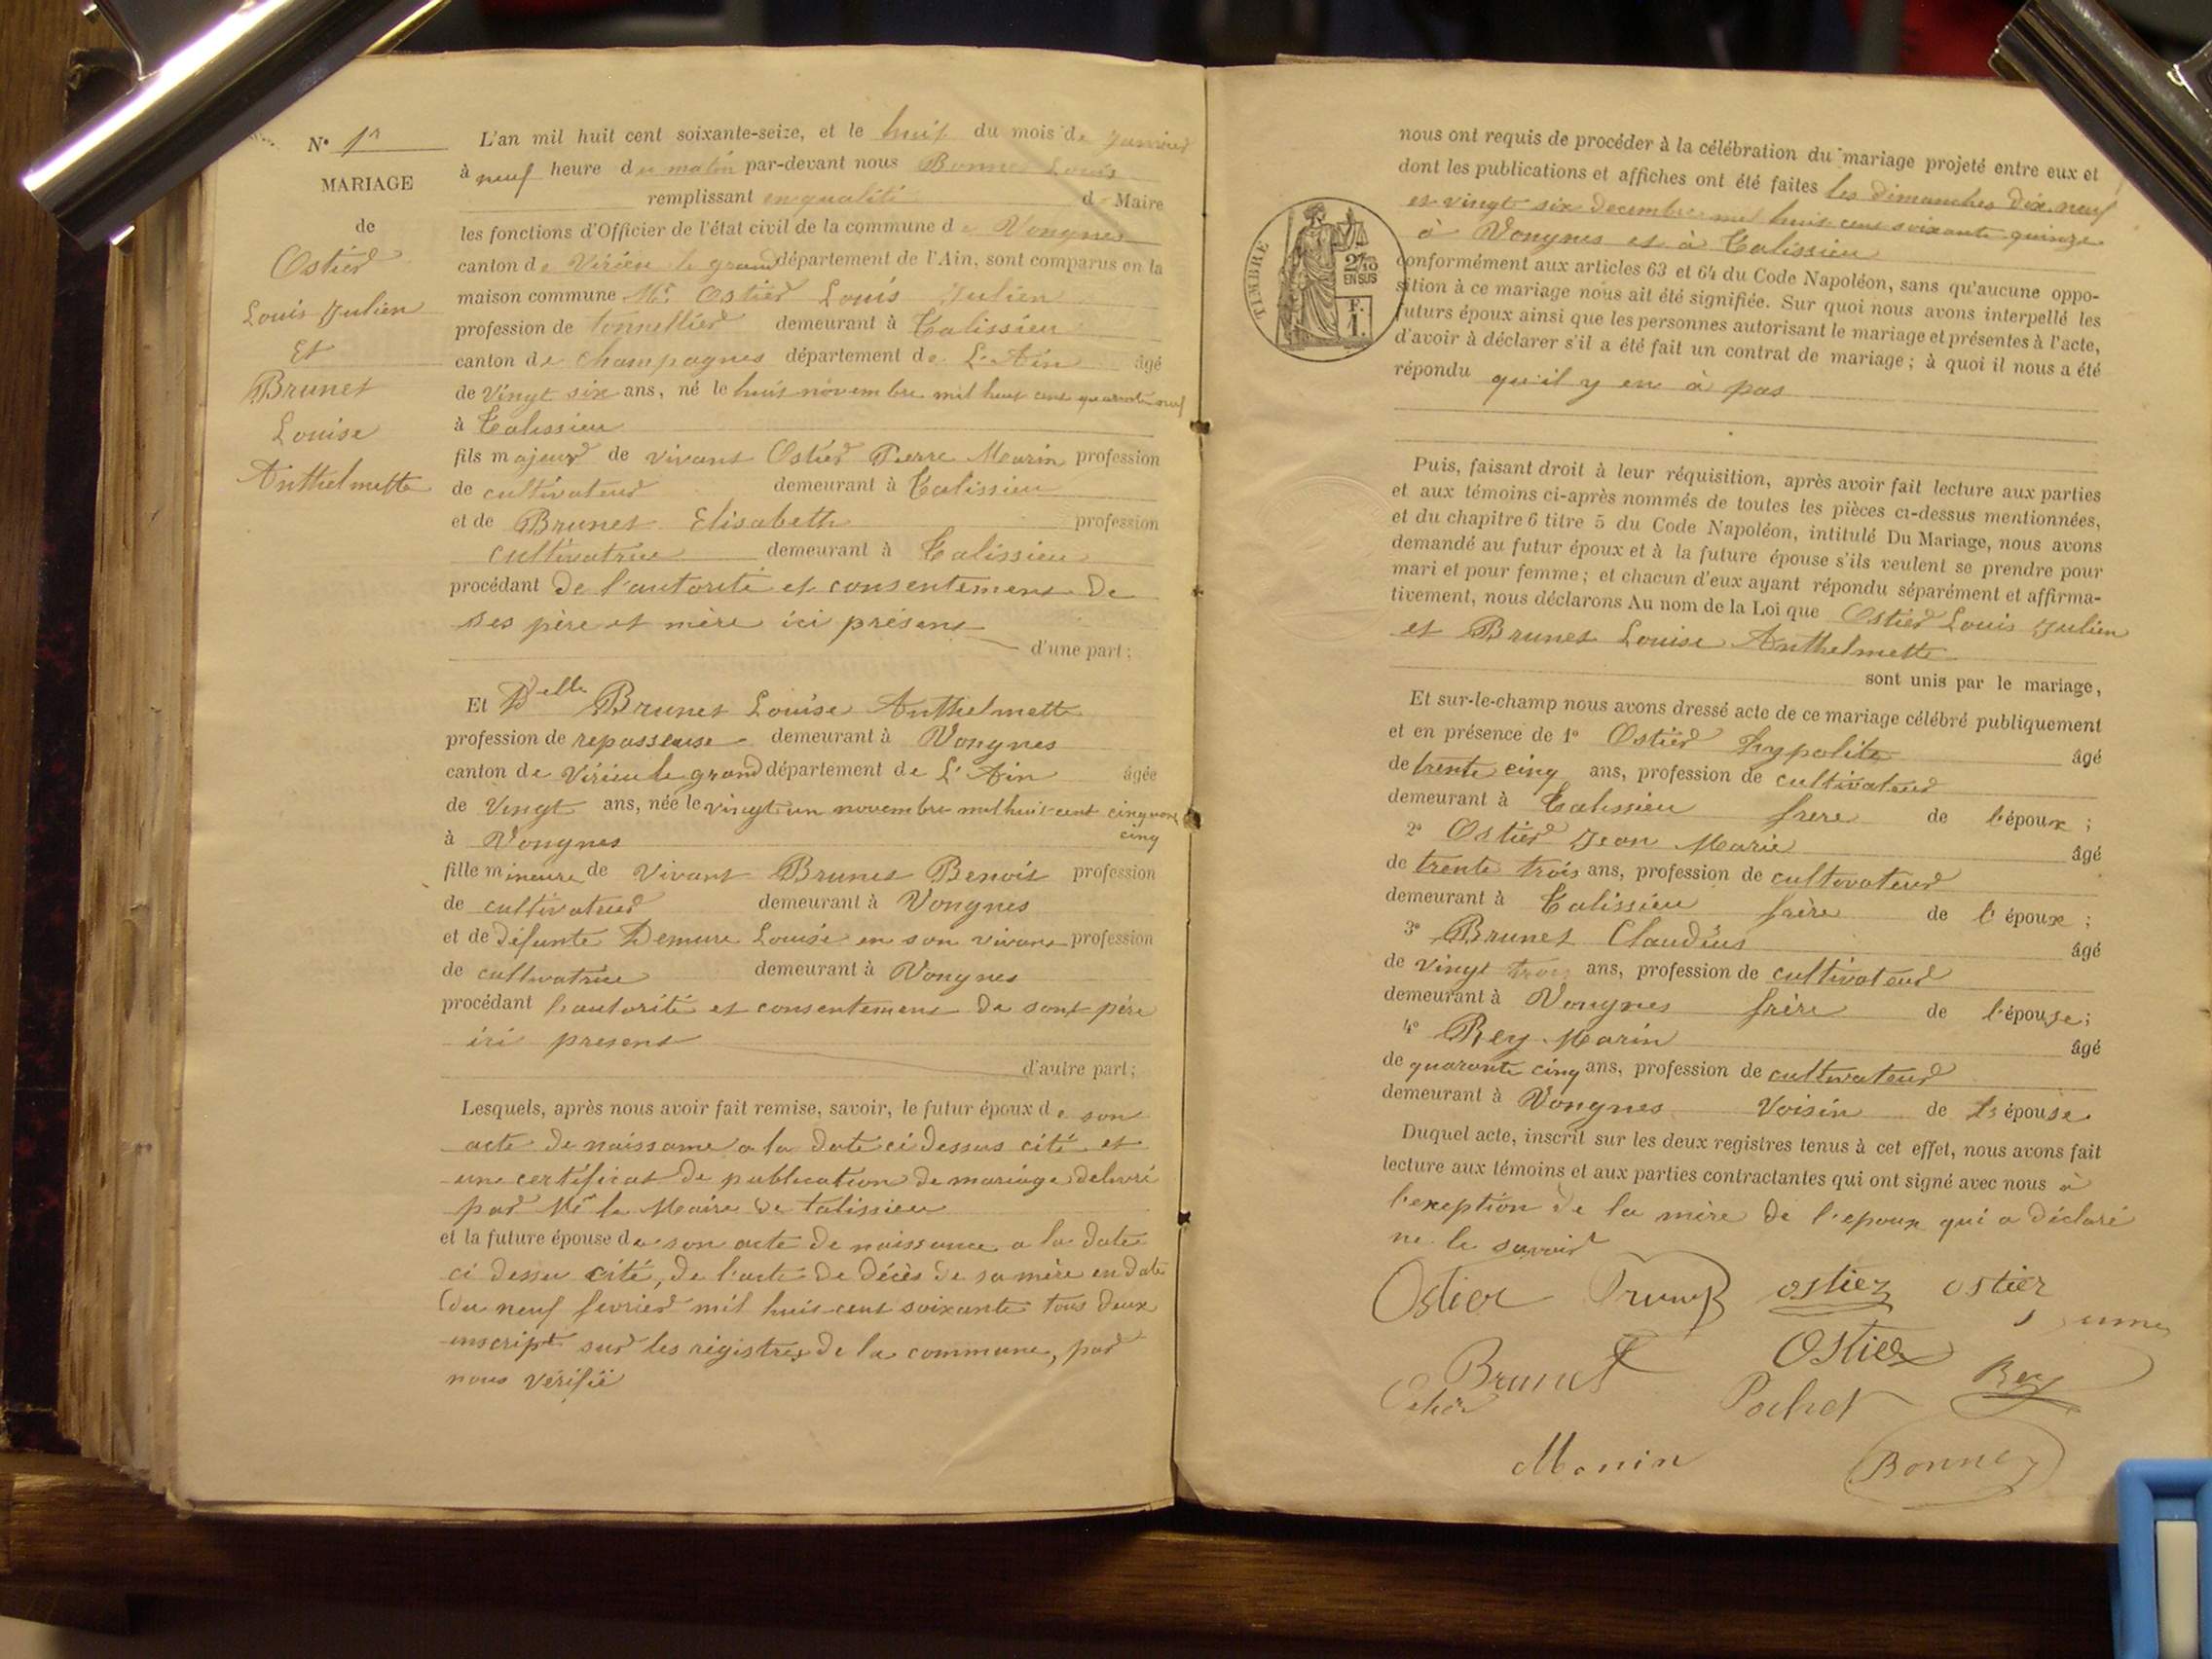 N° 1er
MARIAGE
de
Ostier
Louis Julien
Et
Brunet
Louise
Anthelmette
L'an mil huit cent soixante-seize, et le huit du mois de Janvier
à neuf heure du matin par-devant nous Bonnet Louis
remplissant en qualité d Maire
les fonctions d'Officier de l'état civil de la commune de Vongnes
canton de Virieu le grand département de l'Ain, sont comparus en la
maison commune Mr Ostier Louis Julien
profession de tonnellier demeurant à Talissieu
canton de Champagnes département de L'Ain âgé
de Vingt six ans, né le huit novembre mil huit cent quarante neuf
à Talissieu
fils majeur de vivant Ostier Pierre Marin profession
de cultivateur demeurant à Talissieu
et de Brunet Elisabeth profession
cultivatrice demeurant à Talissieu
procédant de l'autorité et consentement de
ses père et mère ici présent
d'une part;
Et Delle Brunet Louise Anthelmette
profession de repasseuse demeurant à Vongnes
canton de Virieu le grand département de L'Ain âgée
de Vingt ans, née le vingt un novembre mil huit cent cinquante
cinq
à Vongnes
fille mineure de Vivant Brunet Benoit profession
de cultivateur demeurant à Vongnes
et de défunte Demure Louise en son vivant profession
de cultivatrice demeurant à Vongnes
procédant l'autorité et consentement de sont père
ici present
d'autre part;
Lesquels, après nous avoir fait remise, savoir, le futur époux de son
acte de naissance a la date ci dessus cité et
une certificat de publication de mariage delivré
par Mr le Maire de talissieu
et la future épouse de son acte de naissance a la date
ci dessu cité, de l'acte de décès de sa mère en date
du neuf fevrier mil huit cent soixante tous deux
inscript sur les régistres de la commune, par
nous vérifié
TIMBRE
2/10
EN SUS
F.
1.
nous ont requis de procéder à la célébration du mariage projeté entre eux et
dont les publications et affiches ont été faites les dimanches dix neuf
et vingt six decembre mil huit cent soixante quinze
à Vongnes et à Talissieu
conformément aux articles 63 et 64 du Code Napoléon, sans qu'aucune oppo-
sition à ce mariage nous ait été signifiée. Sur quoi nous avons interpellé les
futurs époux ainsi que les personnes autorisant le mariage et présentes à l'acte,
d'avoir à déclarer s'il a été fait un contrat de mariage; à quoi il nous a été
répondu qu'il y en à pas
Puis, faisant droit à leur réquisition, après avoir fait lecture aux parties
et aux témoins ci-après nommés de toutes les pièces ci-dessus mentionnées,
et du chapitre 6 titre 5 du Code Napoléon, intitulé Du Mariage, nous avons
demandé au futur époux et à la future épouse s'ils veulent se prendre pour
mari et pour femme; et chacun d'eux ayant répondu séparément et affirma-
tivement, nous déclarons Au nom de la Loi que Ostier Louis Julien
et Brunet Louise Anthelmette
sont unis par le mariage,
Et sur-le-champ nous avons dressé acte de ce mariage célébré publiquement
et en présence de 1° Ostier hypolite âgé
de trente cinq ans, profession de cultivateur
demeurant à Talissieu frere de l'époux;
2° Ostier Jean Marie âgé
de trente trois ans, profession de cultivateur
demeurant à Talissieu frère de l'époux;
3° Brunet Claudius âgé
de vingt trois ans, profession de cultivateur
demeurant à Vongnes frère de l'épouse;
4° Rey Marin âgé
de quarante cinq ans, profession de cultivateur
demeurant à Vongnes Voisin de L'épouse
Duquel acte, inscrit sur les deux registres tenus à cet effet, nous avons fait
lecture aux témoins et aux parties contractantes qui ont signé avec nous à
l'exeption de la mère de l'epoux qui a déclaré
ne le savoir
Ostier ostier ostier
Brunet Ostier Rey
Pochet
Monin Bonnet